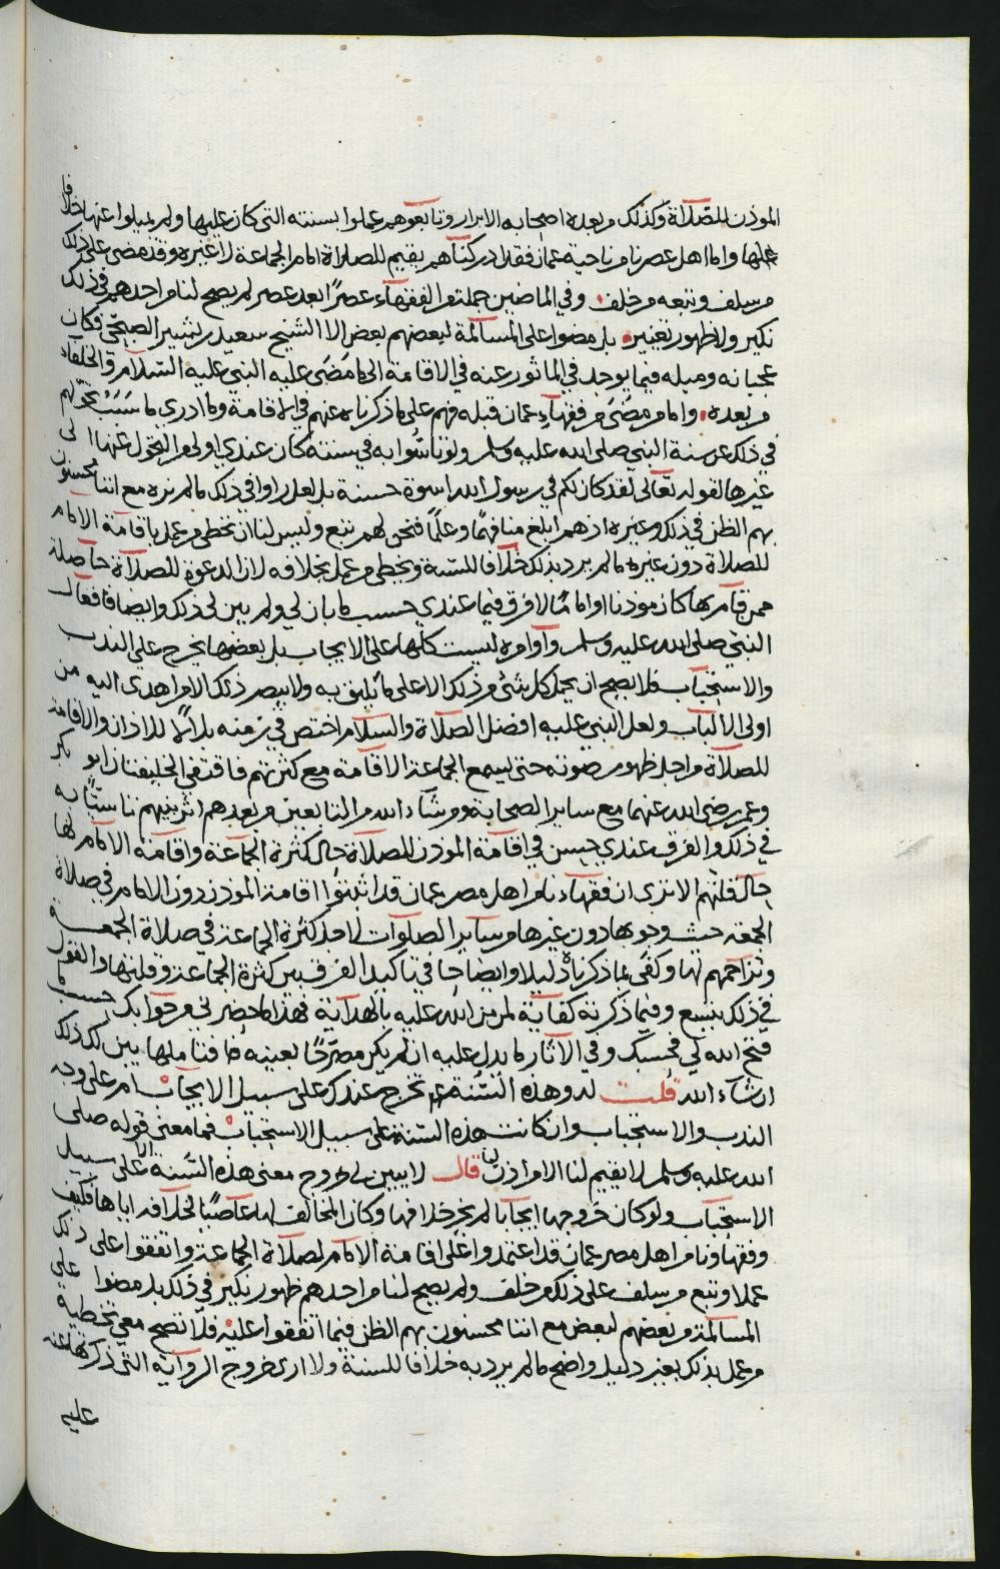 الموذن للصلاة وكذلك من بعده اصحابه الابرار وتابعوهم عملوا بسنته التي كان عليها ولم يميلوا عنها خلافا
عليها واما اهل عصرنا من ناحية عمان فقد ادركناهم يقيم للصلاة امام الجماعة لا غيره وقد مضى على ذلك
من سلف وتبعه من خلف وفي الماضين جملة من الفقهاء عصرًا بعد عصر لم يصح لنا من احدهم في ذلك
نكير ولا ظهور تغيير بل مضوا على المسالمة لبعضهم بعض الا الشيخ سعيد بن بشير الصبحي فكان
عجبانه وميله فيما يوجد في الماثور عنه في الاقامة الى ما مضى عليه النبي عليه السلام والخلفاء
من بعده واما من مضى من فقهاء عمان قبله فهم على ما ذكرناه عنهم في الاقامة وما ادري ما سبب تحولهم
في ذلك عن سنة النبي صلى الله عليه وسلم ولو تاسوا به في سنته كان عندي اولى من التحول عنها الى
غيرها لقوله تعالى لقد كان لكم في رسول الله اسوة حسنة بل لعل راوا في ذلك ما لم نره مع اننا محسنون
بهم الظن في ذلك وغيره اذ هم ابلغ منا فهمًا وعلمًا فنحن لهم تبع وليس لنا ان نخطي من عمل باقامة الامام
للصلاة دون غيره ما لم يرد بذلك خلافا للسنة ويخطي من عمل بخلافه لان الدعوة للصلاة حاصلة
ممن قام بها كان موذنا او امامًا لا فرق فيما عندي حسب ما بان لي ولم يبن لي ذلك وايضا فافعال
النبي صلى الله عليه وسلم واوامره ليست كلها على الايجاب بل بعضها يخرج على الندب
والاستحباب فلا يصح ان يحمل كل شي من ذلك الا على ما يليق به ولا يبصر ذلك الا من اهدى اليه من
اولى الالباب ولعل النبي عليه افضل الصلاة والسلام اختص في زمنه بلالًا للاذان والاقامة
للصلاة من اجل ظهور صوته حتى يسمع الجماعة الاقامة مع كثرتهم فاقتفى الخليفتان ابو بكر
وعمر رضي الله عنهما مع ساير الصحابة ومن شاء الله من التابعين من بعدهم اثر نبيهم تاسيًا به
في ذلك والفرق عندي حسن في اقامة الموذن للصلاة حال كثرة الجماعة واقامة الامام لها
حال قلتهم الا ترى ان فقهاءنا من اهل مصر عمان قد اثبتوا اقامة الموذن دون الامام في صلاة
الجمعة حيث وجوبها دون غيرها من ساير الصلوات لاجل كثرة الجماعة في صلاة الجمعة
وتزاحمهم لها وكفى بما ذكرناه دليلا وايضاحا في تاكيد الفرق بين كثرة الجماعة وقلتها والقول
في ذلك يتسع وفيما ذكرته كفاية لمن من الله عليه بالهداية فهذا ما حضر لي من جوابك حسب ما
فتح الله لي فحسبك وفي الآثار ما يدل عليه ان لم يكن مصرحًا بعينه فتاملها يبن لك ذلك
ان شاء الله قلت له وهذه السنة تخرج عندك على سبيل الايجاب ام على وجه
الندب والاستحباب وان كانت هذه السنة على سبيل الاستحباب فما معنى قوله صلى
الله عليه وسلم لا يقيم لنا الا من اذن لنا قال لا يبين لي خروج معنى هذه السنة الا على سبيل
الاستحباب ولو كان خروجها ايجابا لم يجز خلافها وكان المخالف لها عاصيًا لخلافه اياها فكيف
وفقهاونا من اهل مصر عمان قد اعتمدوا على اقامة الامام لصلاة الجماعة واتفقوا على ذلك
عملا وتبع من سلف على ذلك من خلف ولم يصح لنا من احدهم ظهور نكير في ذلك بل مضوا على
المسالمة من بعضهم لبعض مع اننا محسنون بهم الظن فيما اتفقوا عليه فلا تصح معي تخطية
من عمل بذلك بغير دليل واضح ما لم يرد به خلافا للسنة ولا ارى خروج الرواية التي ذكرتها عنه
عليه